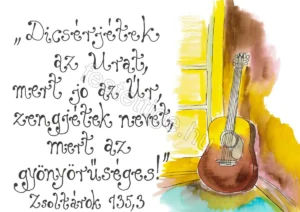 „Dicsérjétek
az Urat,
mert jó az Úr,
zengjétek nevét,
mert az
gyönyörűséges!”
Zsoltárok 135,3